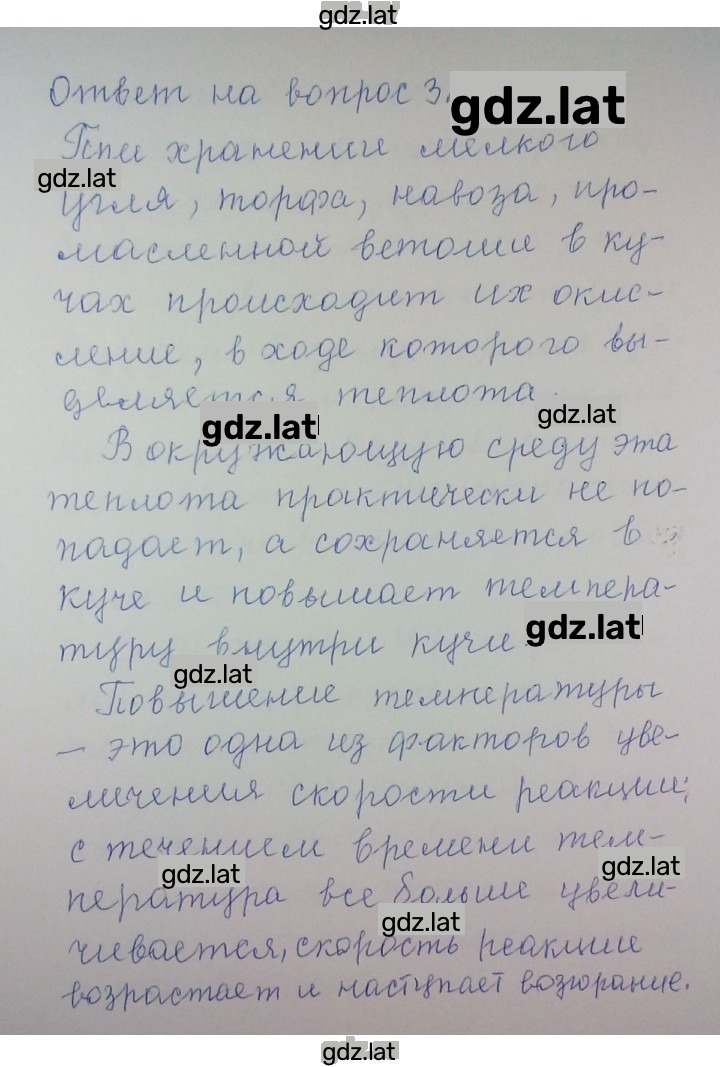 gdz.lat
Ответ на вопрос 3.
gdz.lat
При хранении мелкого
gdz.lat
угля, торфа, навоза, про-
масленной ветоши в ку-
чах происходит их окис-
ление, в ходе которого вы-
деляется теплота.
gdz.lat
gdz.lat
В окружающую среду эта
теплота практически не по-
падает, а сохраняется в
куче и повышает темпера-
туру внутри кучи.
gdz.lat
gdz.lat
Повышение температуры
– это одна из факторов уве-
личения скорости реакции;
с течением времени тем-
gdz.lat
gdz.lat
пература все больше увели-
gdz.lat
чивается, скорость реакции
возрастает и наступает возгорание.
gdz.lat